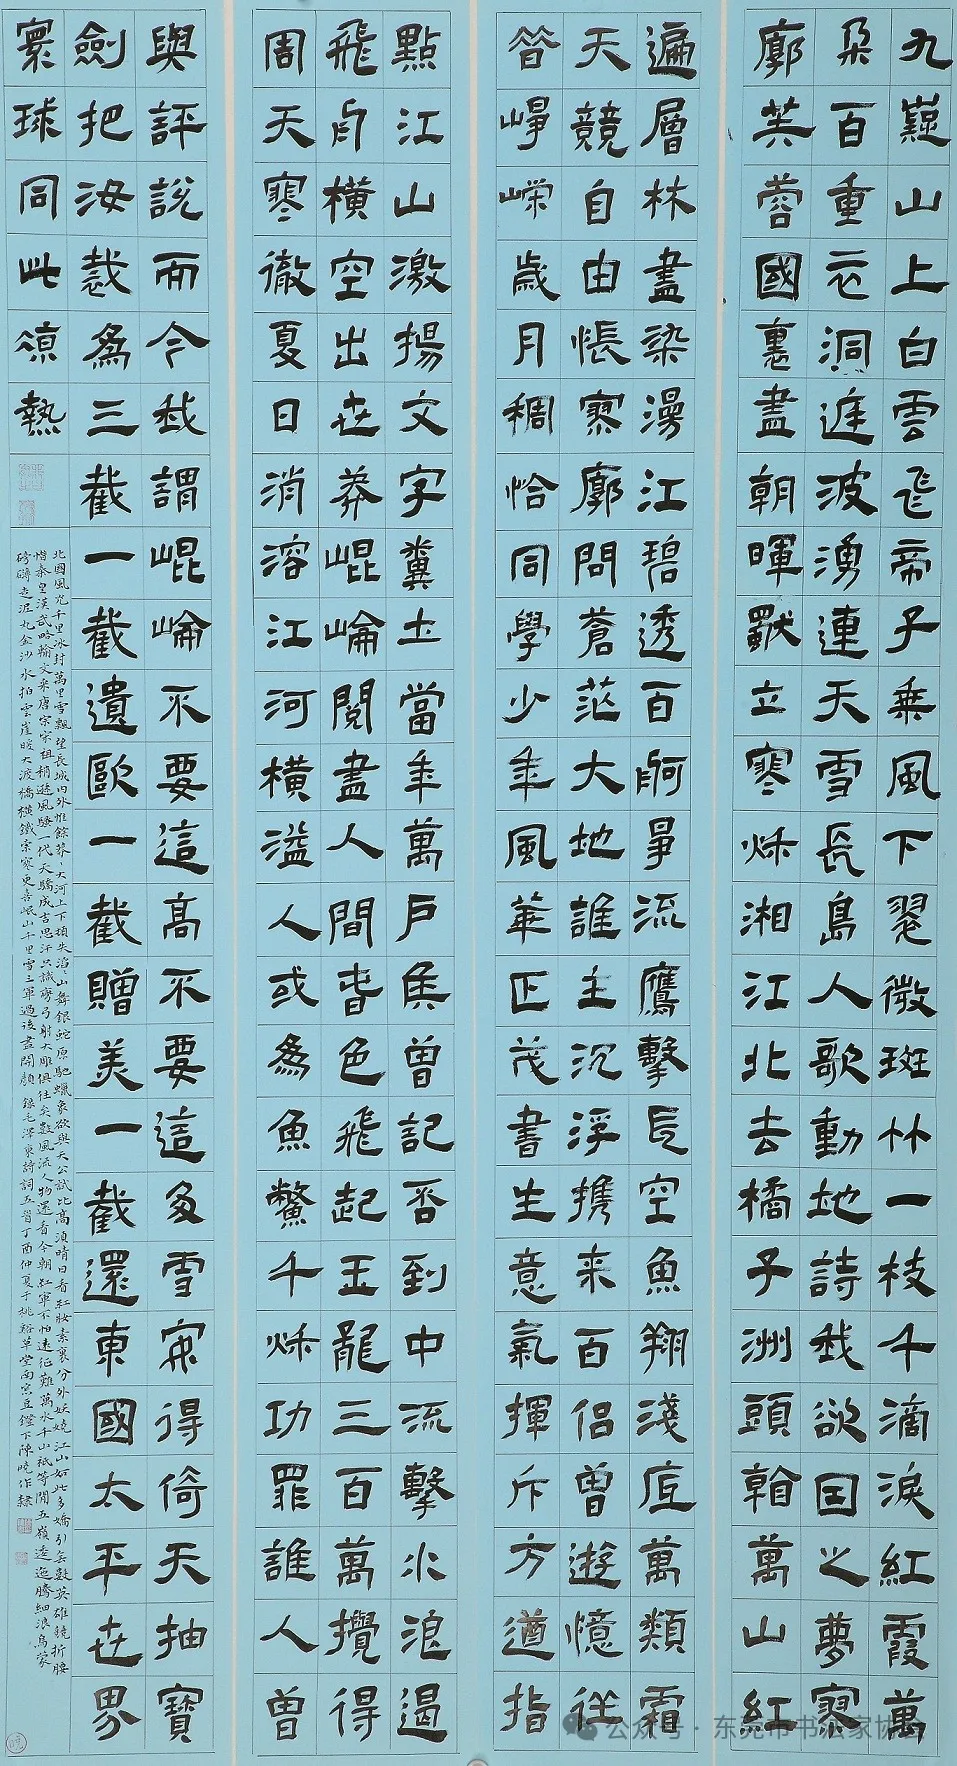 九嶷山上白雲飛帝子乘風下翠微斑竹一枝千滴淚紅霞萬
朵百重衣洞庭波湧連天雪長島人歌動地詩我欲因之夢寥
廓芙蓉國裏盡朝暉獨立寒秋湘江北去橘子洲頭看萬山紅
遍層林盡染漫江碧透百舸爭流鷹擊長空魚翔淺底萬類霜
天競自由悵寥廓問蒼茫大地誰主沉浮攜来百侣曾遊憶往
昔崢嶸歲月稠恰同學少年風華正茂書生意氣揮斥方遒指
點江山激揚文字糞土當年萬户侯曾記否到中流擊水浪遏
飛舟橫空出世莽崐崘閱盡人間春色飛起玉龍三百萬攪得
周天寒徹夏日消溶江河橫溢人或為魚鱉千秋功罪誰人曾
與評說而今我謂崐崘不要這高不要這多雪安得倚天抽寶
劍把汝裁為三截一截遺歐一截贈美一截還東國太平世界
寰球同此凉熱
北國風光千里冰封萬里雪飄望長城内外惟餘莽〻大河上下頓失滔〻山舞銀蛇原馳蠟象欲與天公試比高須晴日看紅妝素裹分外妖嬈江山如此多嬌引無數英雄競折腰
惜秦皇漢武略輸文采唐宗宋祖稍遜風騷一代天驕成吉思汗只識彎弓射大雕俱往矣數風流人物還看今朝紅軍不怕遠征難萬水千山祇等閒五嶺逶迤騰細浪烏蒙
磅礴走泥丸金沙水拍雲崖暖大渡橋橫鐵索寒更喜岷山千里雪三軍過後盡開顏 錄毛澤東詩詞五首丁酉仲夏于桃谿草堂南窗豆鐙下陳曉作隸
公众号·东莞市书法家协会